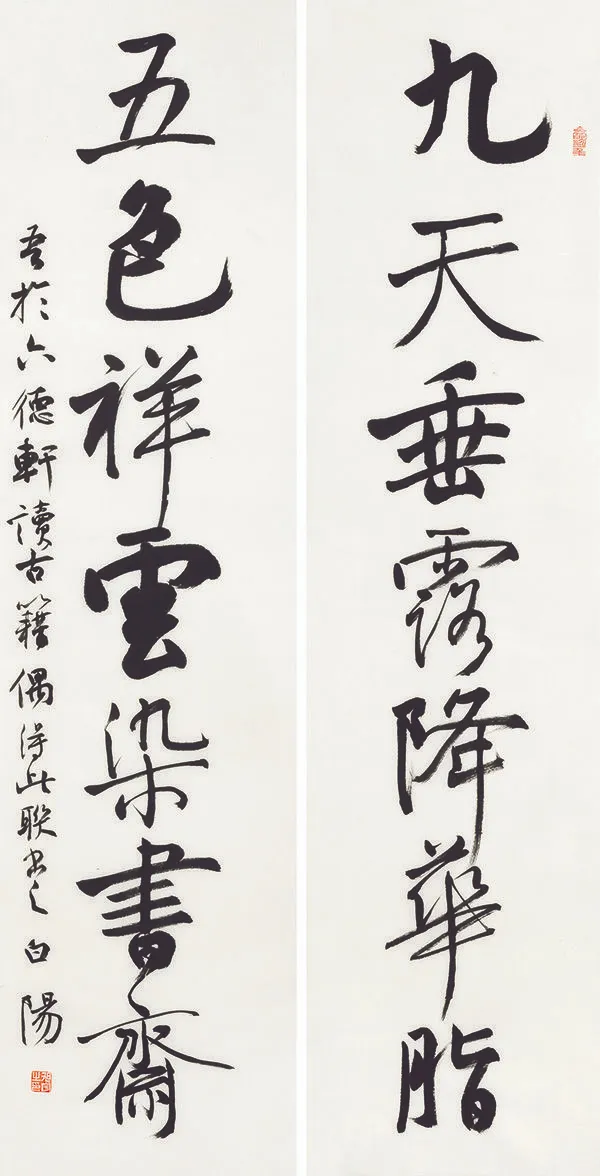 九天垂露降華脂
五色祥雲染書齋
吾於六德軒讀古籍偶得此聯書之白陽